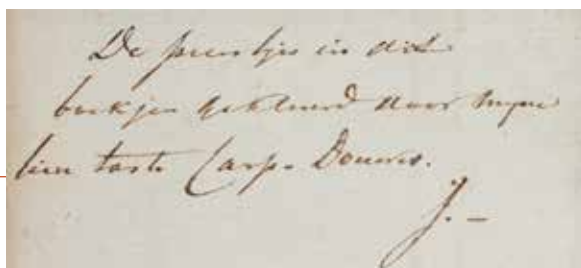 De prentjes in dit
boekjen gekleurd door mijne
tante Carp-Douwes.
J. –